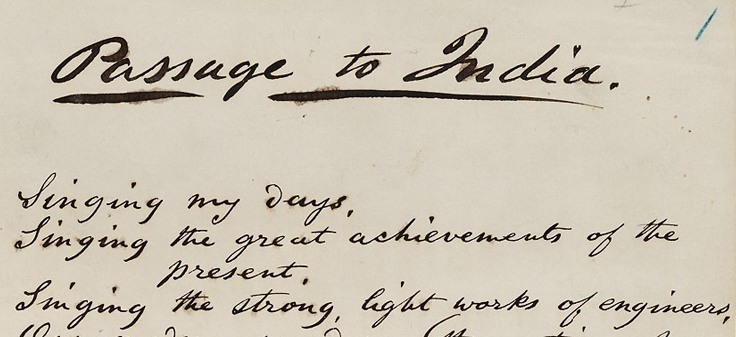 Passage to India.
Singing my days,
Singing the great achievements of the
present,
Singing the strong, light works of engineers,